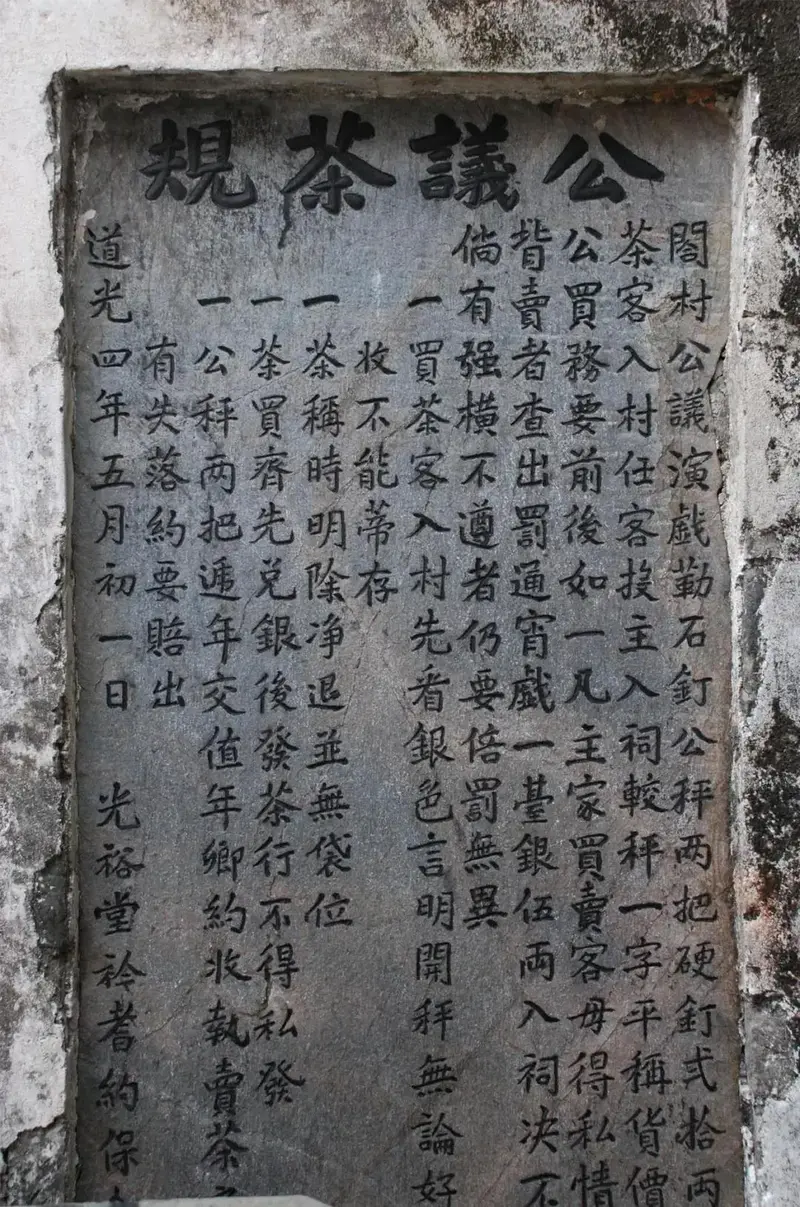 公議茶規
閤村公議演戲勒石釘公秤两把硬釘弍拾両
茶客入村任客投主入祠較秤一字平稱貨價
公買務要前後如一凡主家買賣客毋得私情
背賣者查出罰通宵戲一臺銀伍両入祠决不
倘有强橫不遵者仍要倍罰無異
一買茶客入村先看銀色言明開秤無論好
收不能蒂存
一茶稱時明除净退並無袋位
一茶買齊先兑銀後發茶行不得私發
一公秤两把遞年交值年鄉約收執賣茶
有失落約要賠出
道光四年五月初一日 光裕堂衿耆約保